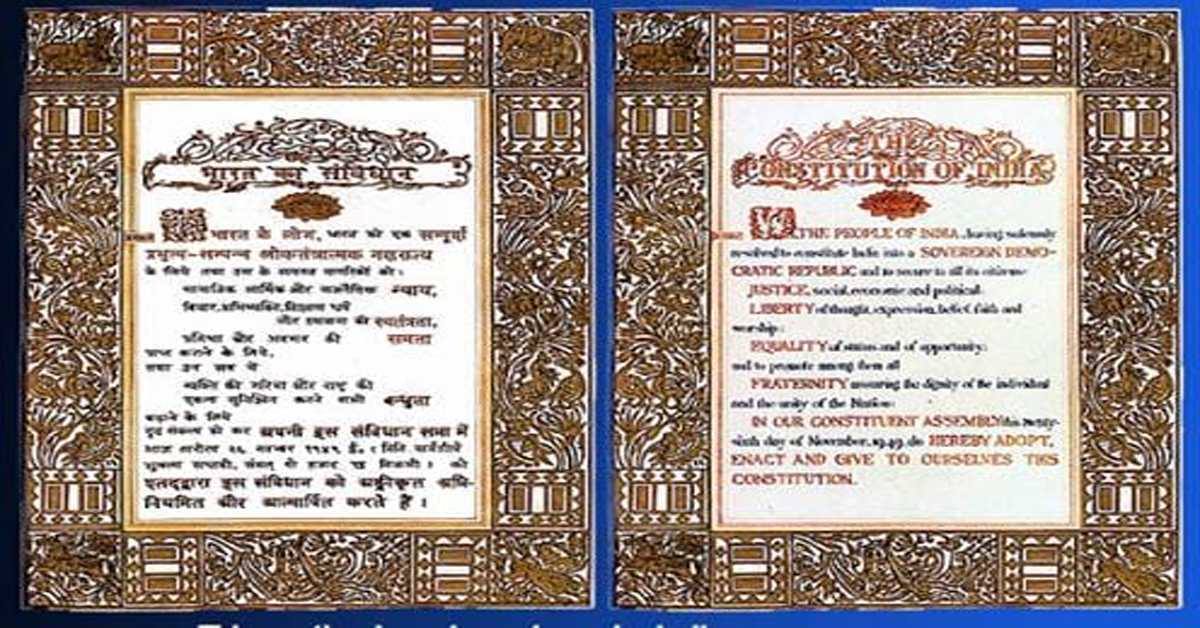 भारत का संविधान
भारत के लोग, भारत को एक सम्पूर्ण
प्रभुत्व-सम्पन्न लोकतंत्रात्मक गणराज्य
के लिये तथा उस के समस्त नागरिकों को:
सामाजिक आर्थिक और राजनैतिक न्याय,
विचार, अभिव्यक्ति, विश्वास, धर्म
और उपासना की स्वतंत्रता,
प्रतिष्ठा और अवसर की समता
प्राप्त कराने के लिये,
तथा उन सब में
व्यक्ति की गरिमा और राष्ट्र की
एकता सुनिश्चित करने वाली बन्धुता
बढ़ाने के लिये
दृढ़ संकल्प हो कर अपनी इस संविधान सभा में
आज तारीख २६ नवम्बर १९४९ ई. (मिति मार्गशीर्ष
शुक्ला सप्तमी, संवत् दो हजार छः विक्रमी) को
एतद्द्वारा इस संविधान को अङ्गीकृत अधि-
नियमित और आत्मार्पित करते हैं।
THE
CONSTITUTION OF INDIA
WE, THE PEOPLE OF INDIA, having solemnly
resolved to constitute India into a SOVEREIGN DEMO-
CRATIC REPUBLIC and to secure to all its citizens:
JUSTICE, social, economic and political;
LIBERTY of thought, expression, belief, faith and
worship;
EQUALITY of status and of opportunity;
and to promote among them all
FRATERNITY assuring the dignity of the individual
and the unity of the Nation;
IN OUR CONSTITUENT ASSEMBLY this twenty-
sixth day of November, 1949, do HEREBY ADOPT,
ENACT AND GIVE TO OURSELVES THIS
CONSTITUTION.